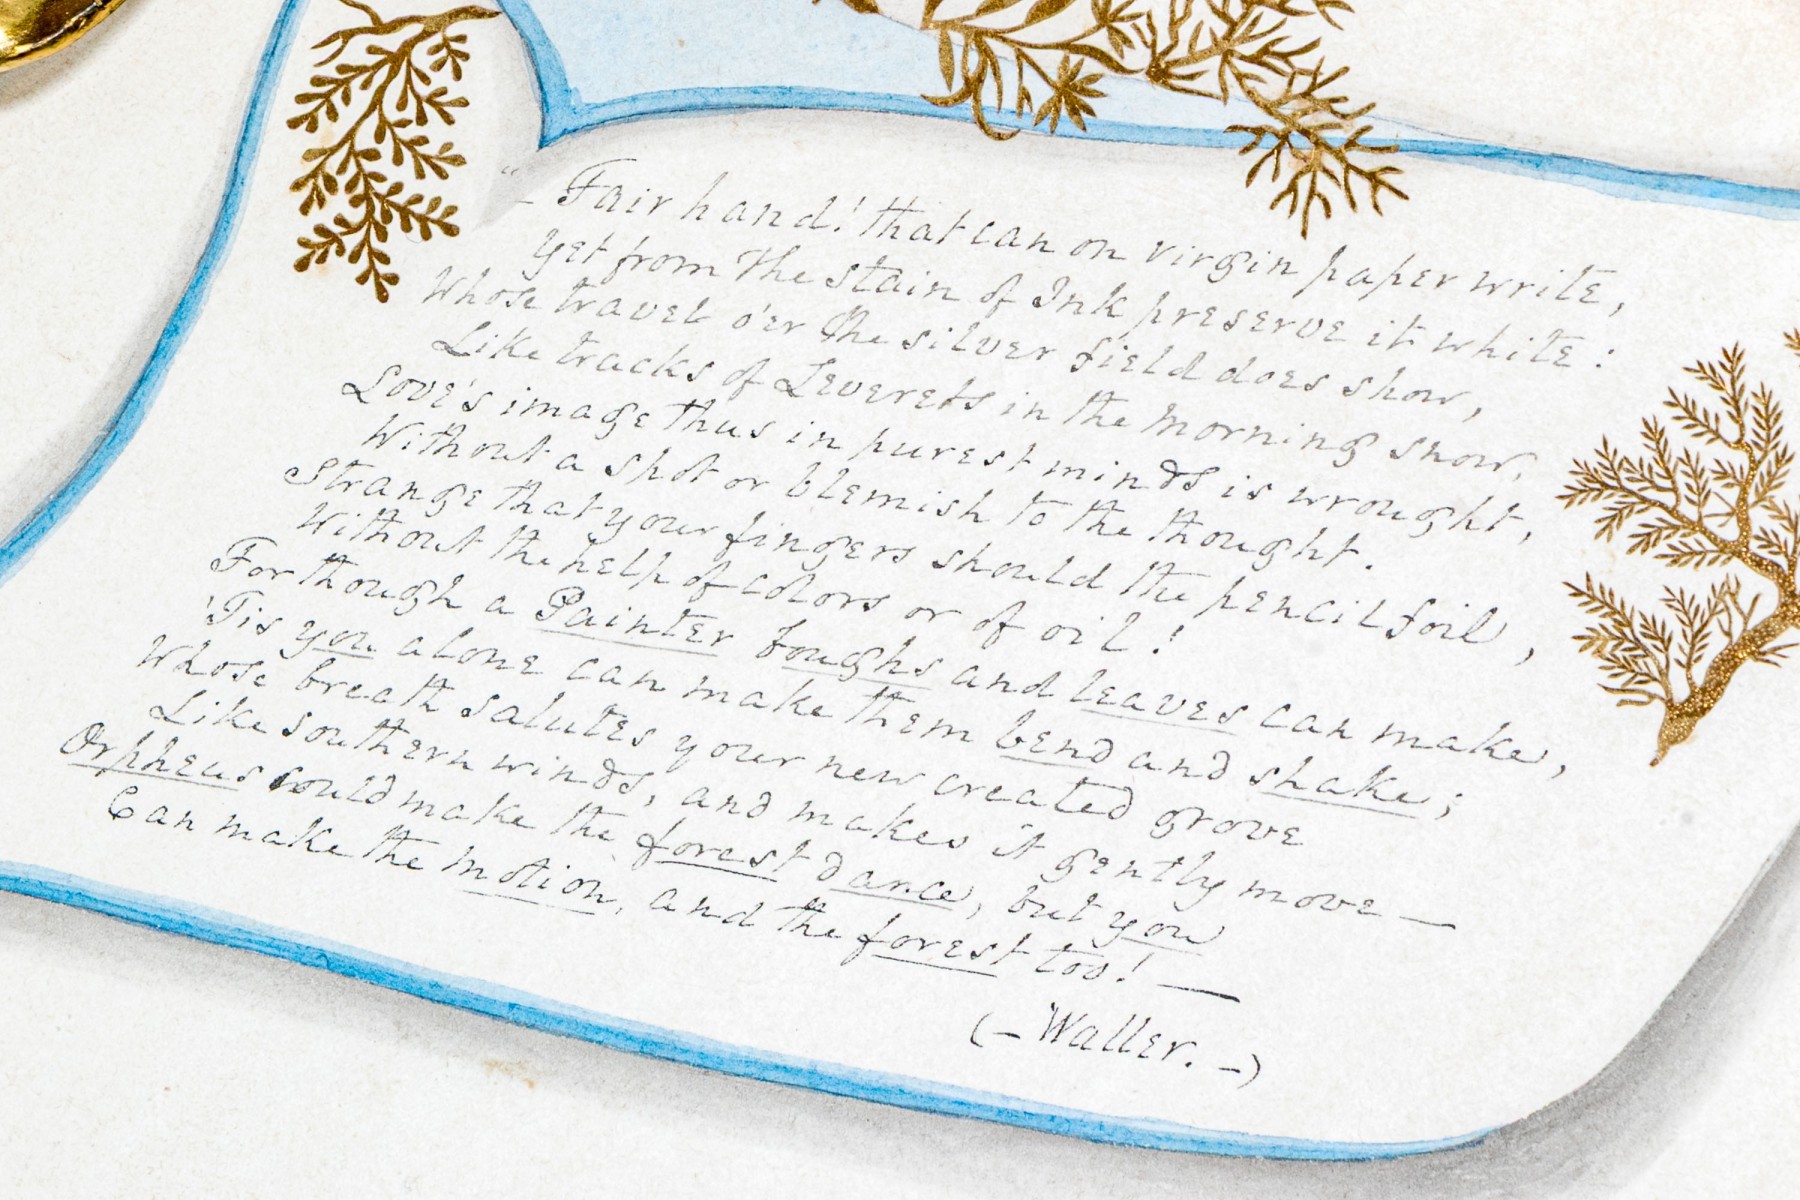 "– Fair hand! that can on virgin paper write,
Yet from the stain of Ink preserve it white:
Whose travel o'er the silver field does show,
Like tracks of Leverets in the morning snow,
Love's image thus in purest minds is wrought,
Without a spot or blemish to the thought.
Strange that your fingers should the pencil foil,
Without the help of colors or of oil!
For though a Painter boughs and leaves can make,
'Tis you alone can make them bend and shake;
Whose breath salutes your new created grove
Like southern winds, and makes it gently move –
Orpheus could make the forest dance, but you
Can make the motion, and the forest too! –
(– Waller. –)